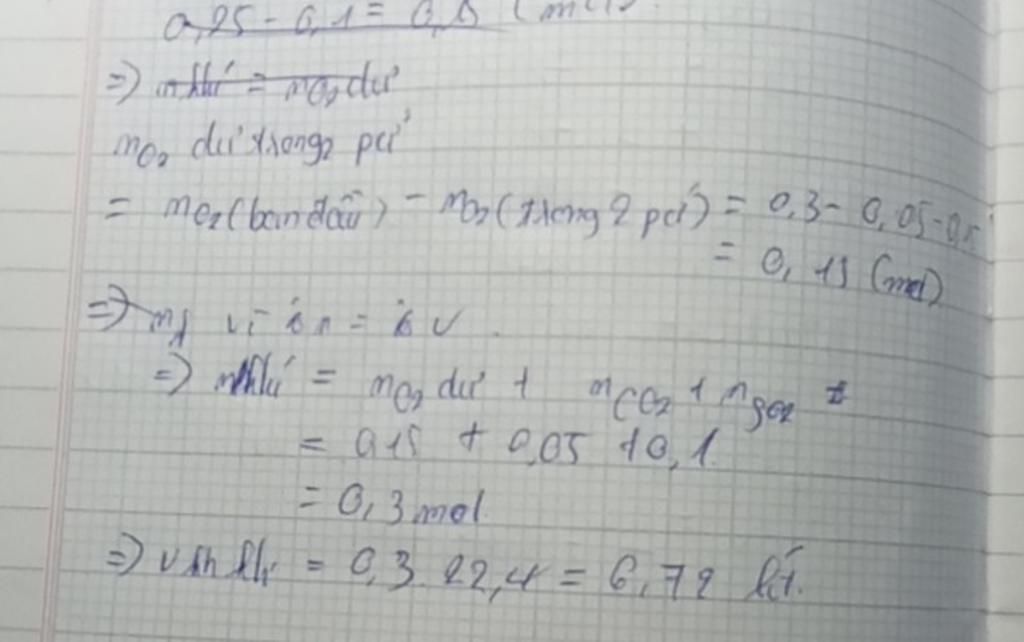 0,25 - 0,1 = 0,15 (mol).
⇒ n khí = nO₂ dư
nO₂ dư trong 2 pứ
= nO₂ (ban đầu) - nO₂ (trong 2 pứ) = 0,3 - 0,05 - 0,1
= 0,15 (mol)
⇒
⇒ n khí = nO₂ dư + nCO₂ + nSO₂
= 0,15 + 0,05 + 0,1
= 0,3 mol
⇒ V hh khí = 0,3 22,4 = 6,72 lít.